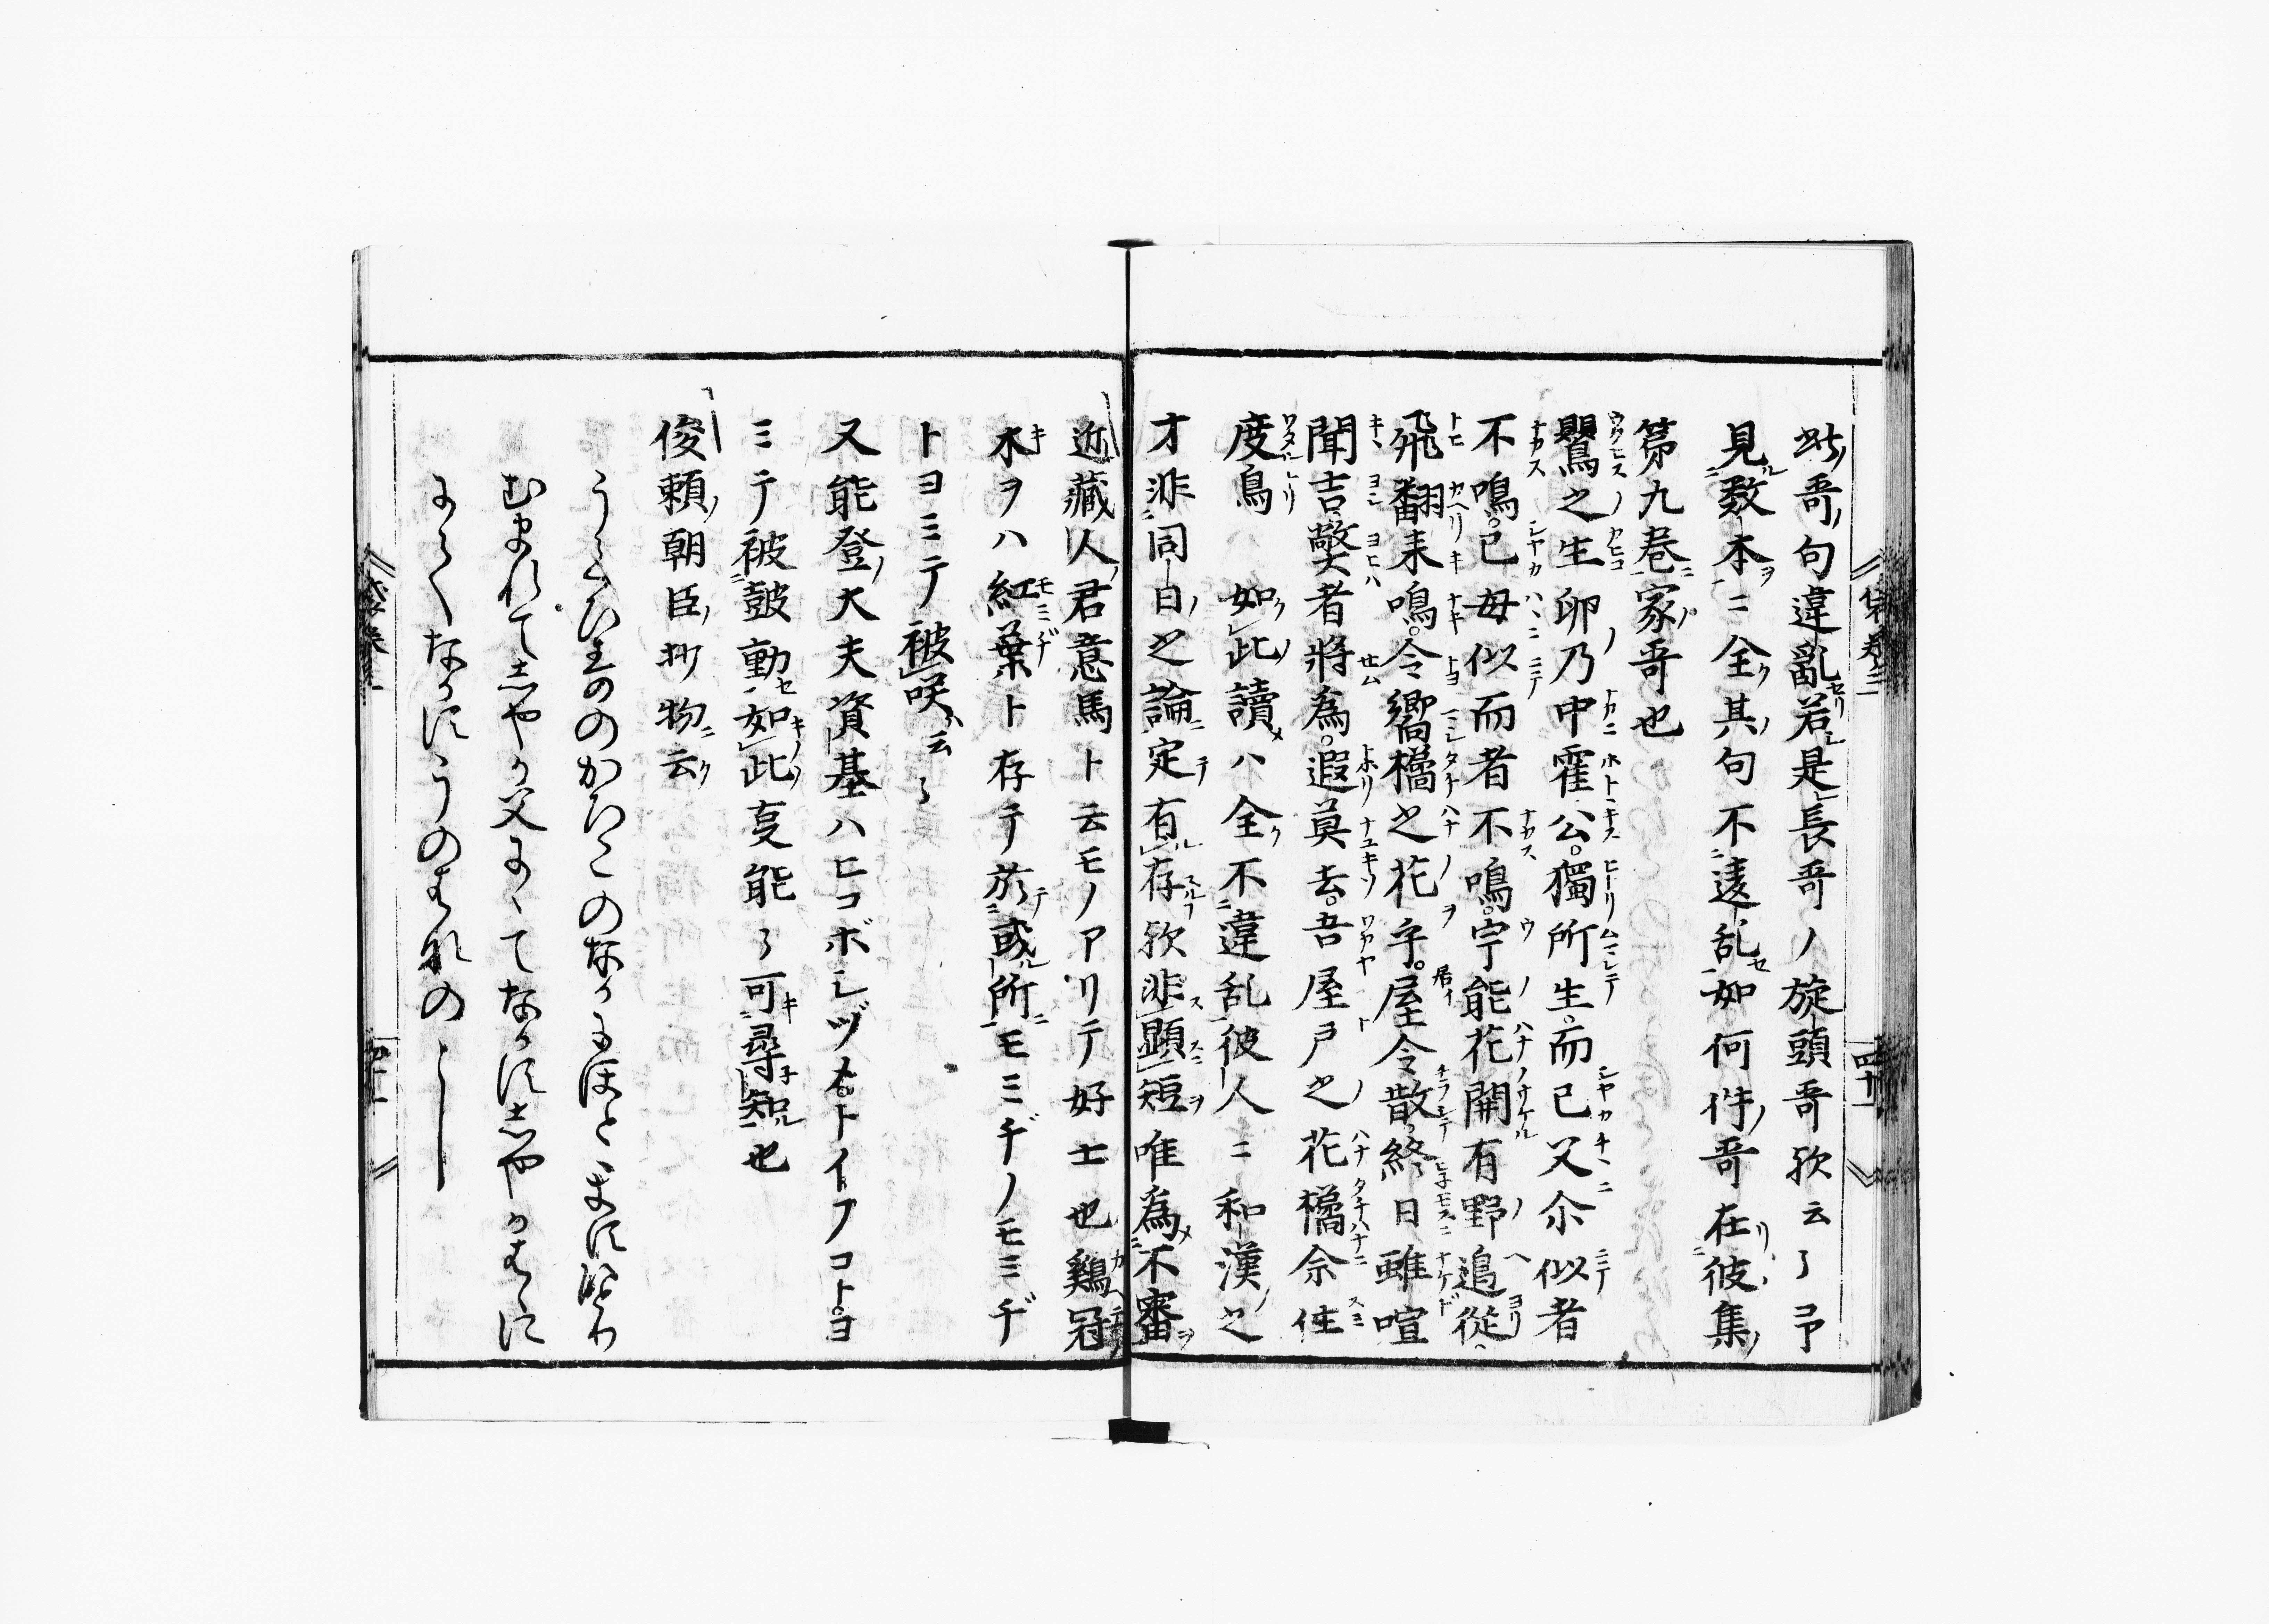 此哥句違亂若是長哥ノ旋頭哥歟云々予
見数本ニ全其句不違乱如何件哥在彼集
第九巻家哥也
鸎之生卵乃中霍公獨所生而己父尓似者
不鳴己母似而者不鳴宇能花開有野邊從
飛翻来鳴令響橘之花乎居令散終日雖喧
聞吉弊者將為遐莫去吾屋戸之花橘尓住
度鳥 如此讀ハ全不違乱彼人ニ和漢之
才非同日之論定有存歟非顕短唯為不審
近藏人君意馬ト云モノアリテ好士也鷄冠
木ヲハ紅葉ト存テ於或所モミヂノモミヂ
トヨミテ被咲云々
又能登大夫資基ハヒコボシヅホトイフコトヨ
ミテ被鼓動如此㕝能々可尋知也
俊頼朝臣抄物云
うくひすのかひこのなかにほとゝきすひとり
むまれてしやか父にゝてなかすしやかはゝに
にてなかすうのはなの